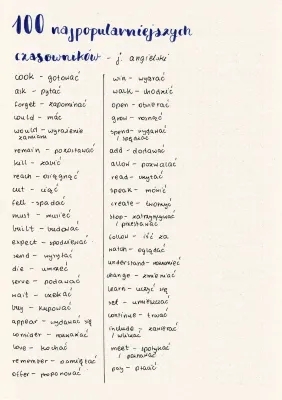 100 najpopularniejszych
czasowników - j. angielski
cook - gotować
ask - pytać
forget - zapominać
would - móc
would - wyrażenie
zamiaru
remain - pozostawać
kill - zabić
reach - osiągnąć
cut - ciąć
fell - spadać
must - musieć
built - budować
expect - spodziewać
send - wysyłać
die - umrzeć
serve - podawać
wait - czekać
buy - kupować
appear - wydawać się
consider - rozważać
love - kochać
remember - pamiętać
offer - proponować
win - wygrać
walk - chodzić
open - otwierać
grow - rosnąć
spend - wydawać
/ spędzać
add - dodawać
allow - pozwalać
read - czytać
speak - mówić
create - tworzyć
stop - zatrzymywać
/ przestawać
follow - iść za
watch - oglądać
understand - rozumieć
change - zmieniać
learn - uczyć się
set - umieszczać
continue - trwać
include - zawierać
/ wliczać
meet - spotykać
/ poznawać
pay - płacić